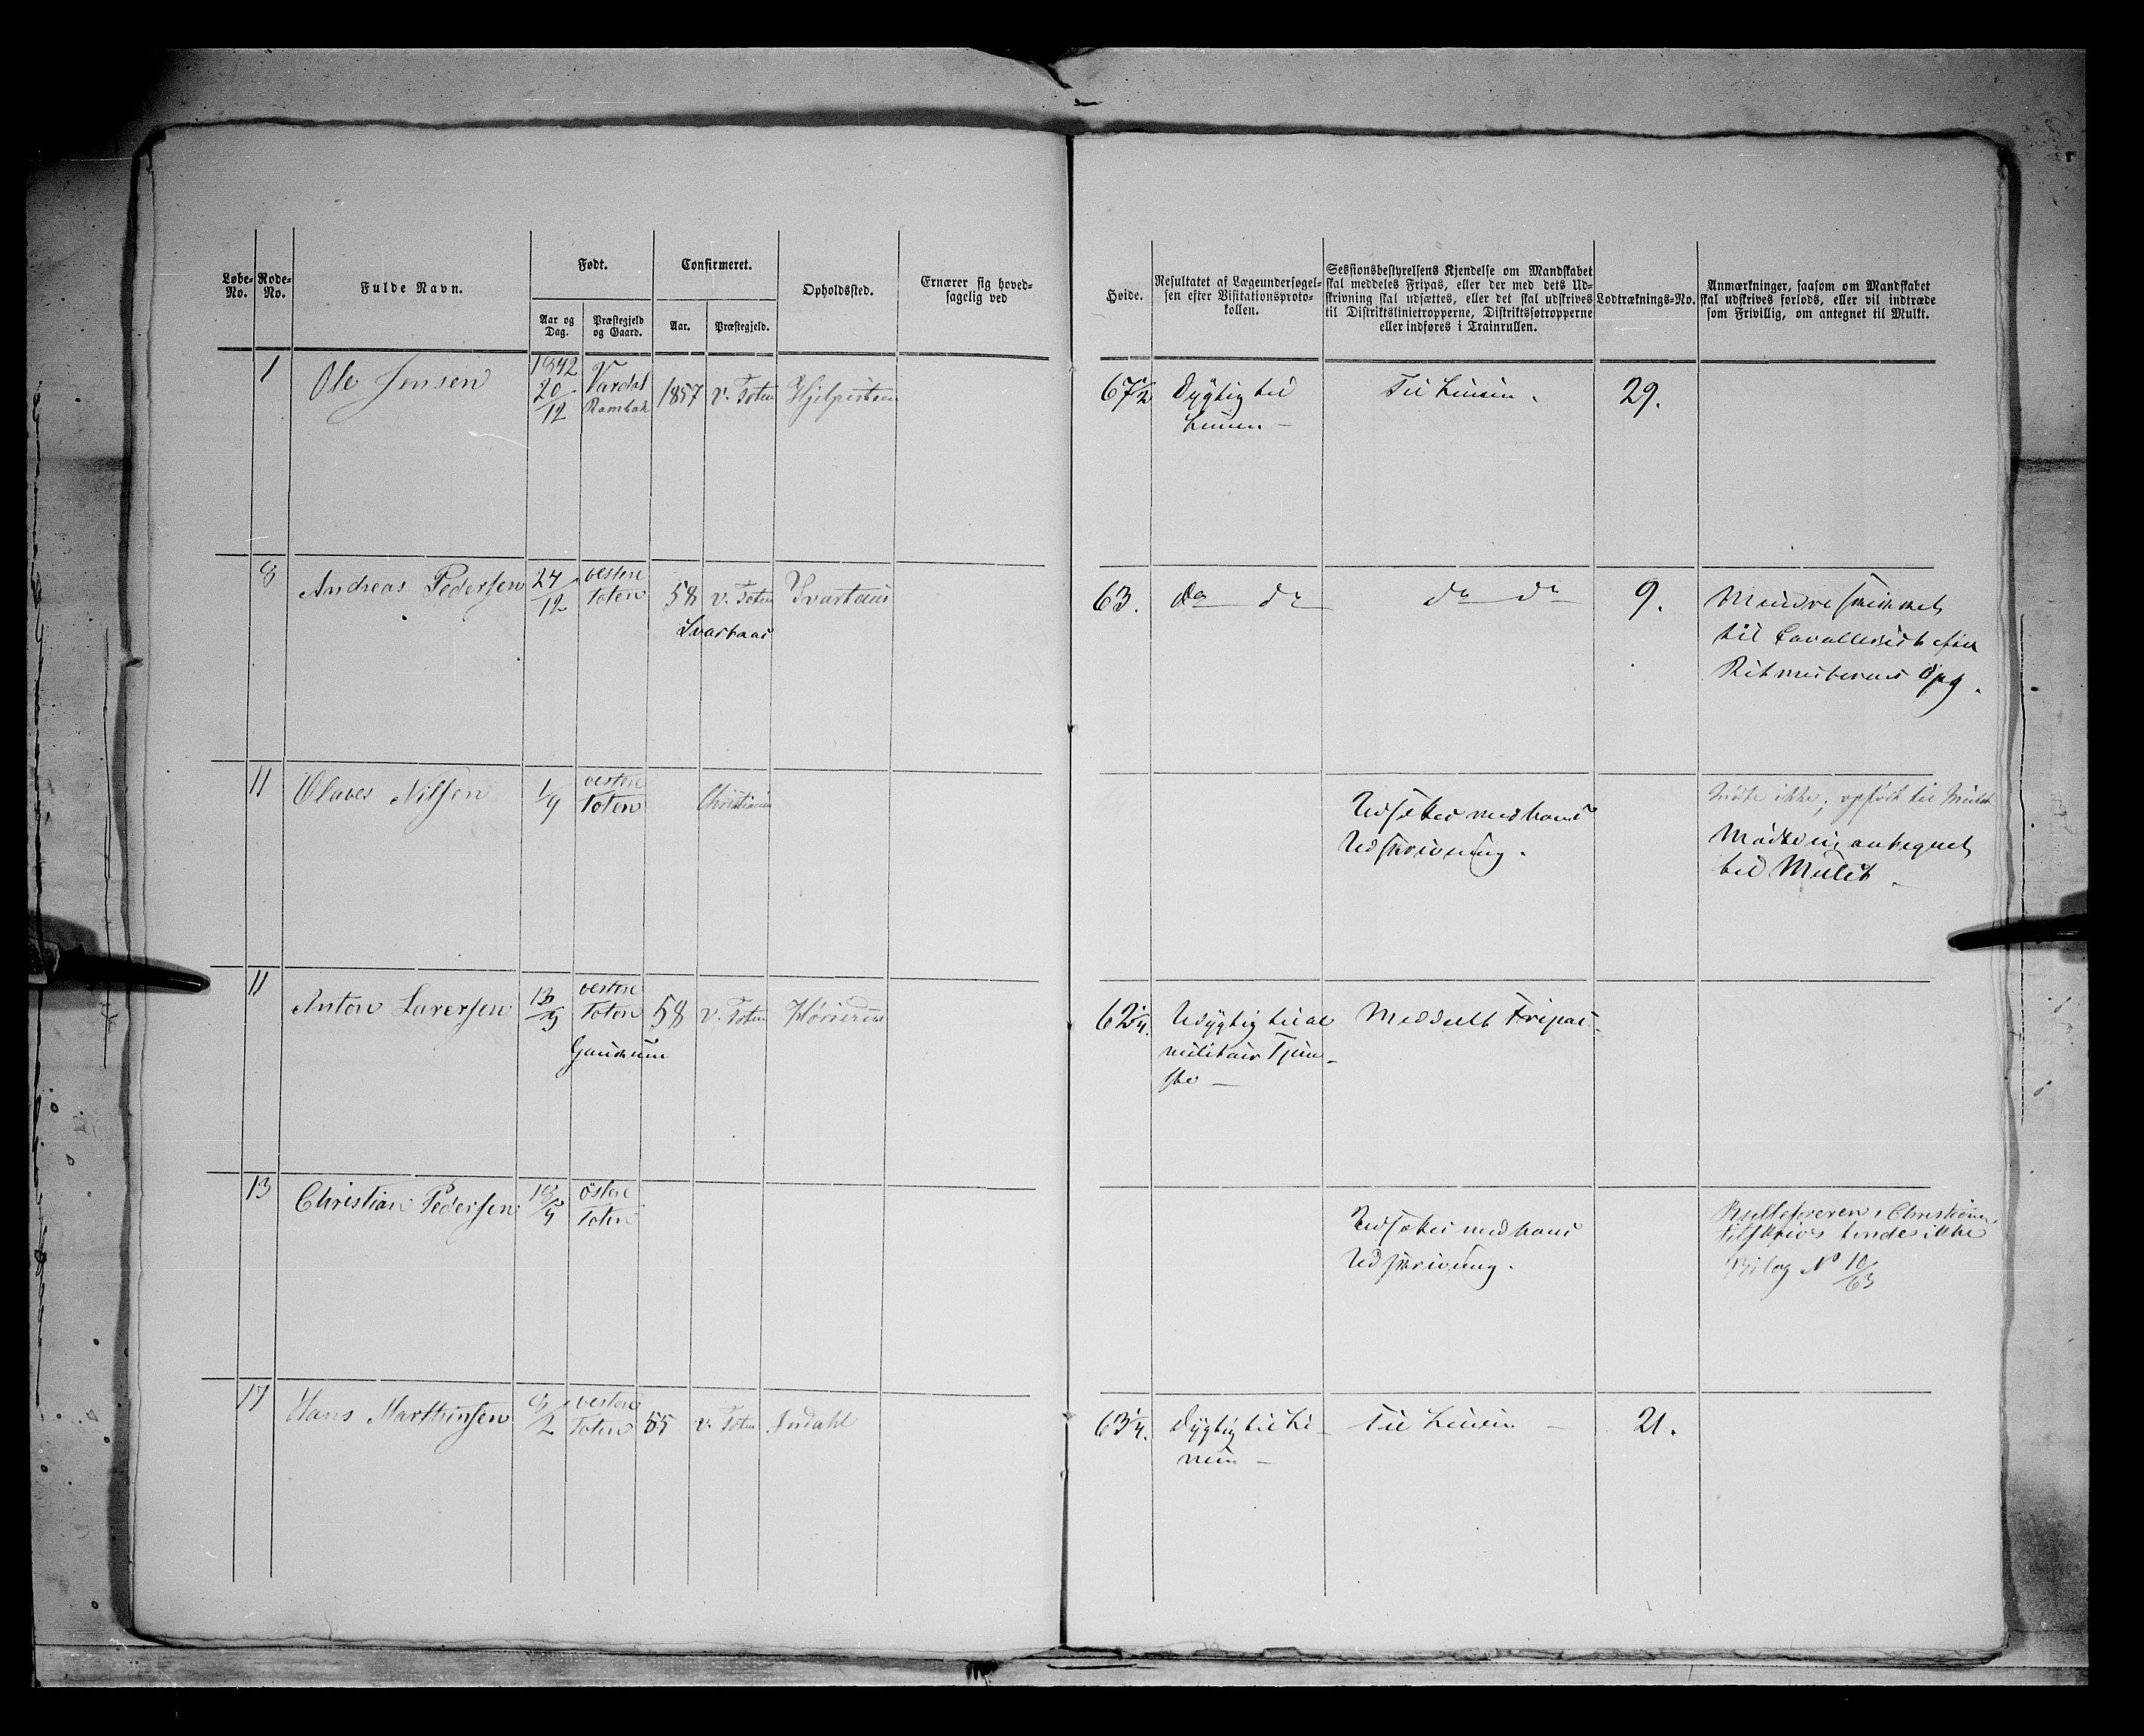 Løbe-No.
Rode-No.
Fulde Navn.
Født.
Aar og Dag.
Præstegjeld og Gaard.
Confirmeret.
Aar.
Præstegjeld.
Opholdssted.
Ernærer sig hoved-
sagelig ved
Høide.
Resultatet af Lægeundersøgel-
sen efter Visitationsproto-
kollen.
Sessionsbestyrelsens Kjendelse om Mandskabet
skal meddeles Fripas, eller der med dets Ud-
skrivning skal udsættes, eller det skal udskrives
til Distriktslinietropperne, Distriktsfotropperne
eller indføres i Trainrullen.
Lodtræknings-No.
Anmærkninger, saasom om Mandskabet
skal udskrives forlods, eller vil indtræde
som Frivillig, om antegnet til Mulkt.
1 Ole Jensen 1842 20/12 Vardal 1857 V. Toten
67½ Dygtig til Linien. Til Linien. 29.
8 Andreas Pedersen 24/12 vestere Toten 58 V. Toten
63. do do do do 9.
til Cavallerist efter
Ritmesterens Opg.
11 Olaves Nilsen 1/9 vestere Toten Christiania
Udsættes med hans
Udskrivning.
Mødte ikke, opført til Mulct
Mødte ei, antegnet
til Mulct.
11 Anton Larersen vestere Toten 58 V. Toten
62¼. Udygtig til al
militair Tjene-
ste
Meddelt Fripas.
13 Christian Pedersen østere Toten
Udsættes med hans
Udskrivning.
Rulleføreren i Christiania
tilskrives findes ikke
Bilag No 10/63
17 Hans Marthinsen 8/2 vestere Toten 55 V. Toten Indahl
63¼. Dygtig til Li-
nien
Til Linien 21.